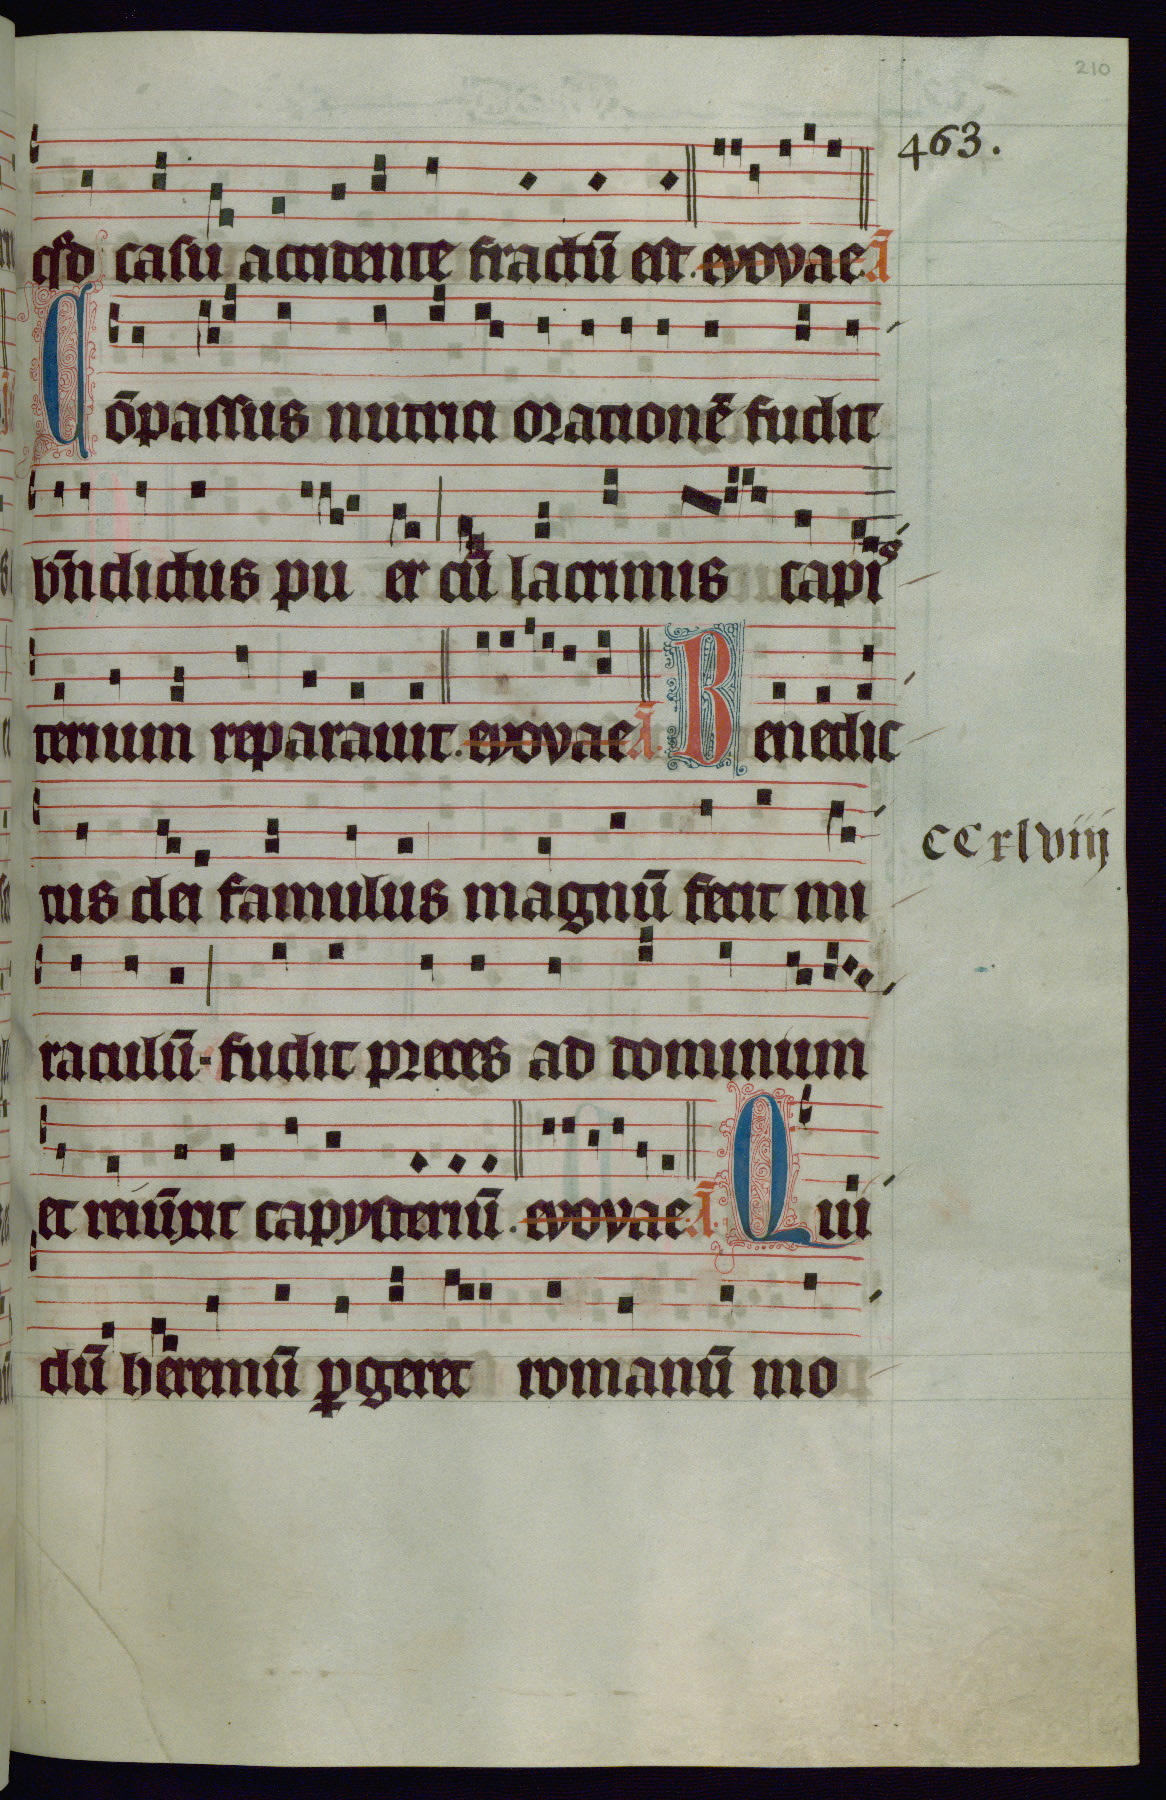 210
463.
qd casu accidente fractū est. evovae Ā
Cōpassus nutrici orationē fudit
bn̄dictus pu er cū lacrimis capis
terium reparauit. evovae Ā. Benedic
tus dei famulus magnū fecit mi
CCxlviij
raculū fudit preces ad dominum
et reiūxit capysteriū. evovae Ā. Qui
dū heremū pgeret romanū mo